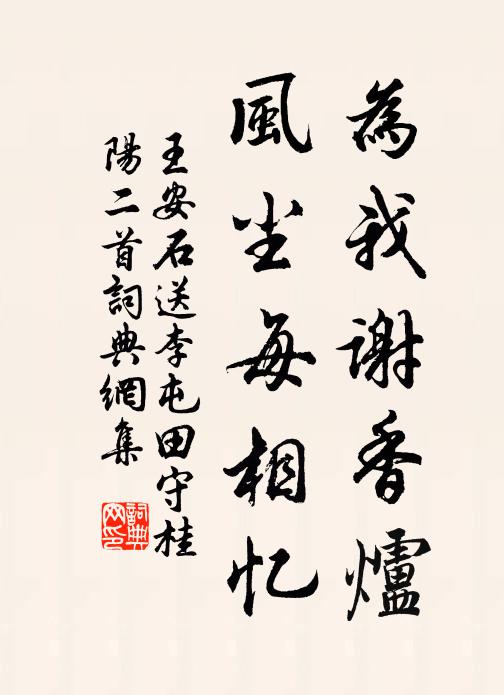 為我謝香爐
風尘每相忆
王安石送李屯田守桂
陽二首詞典網集
詞典
网印